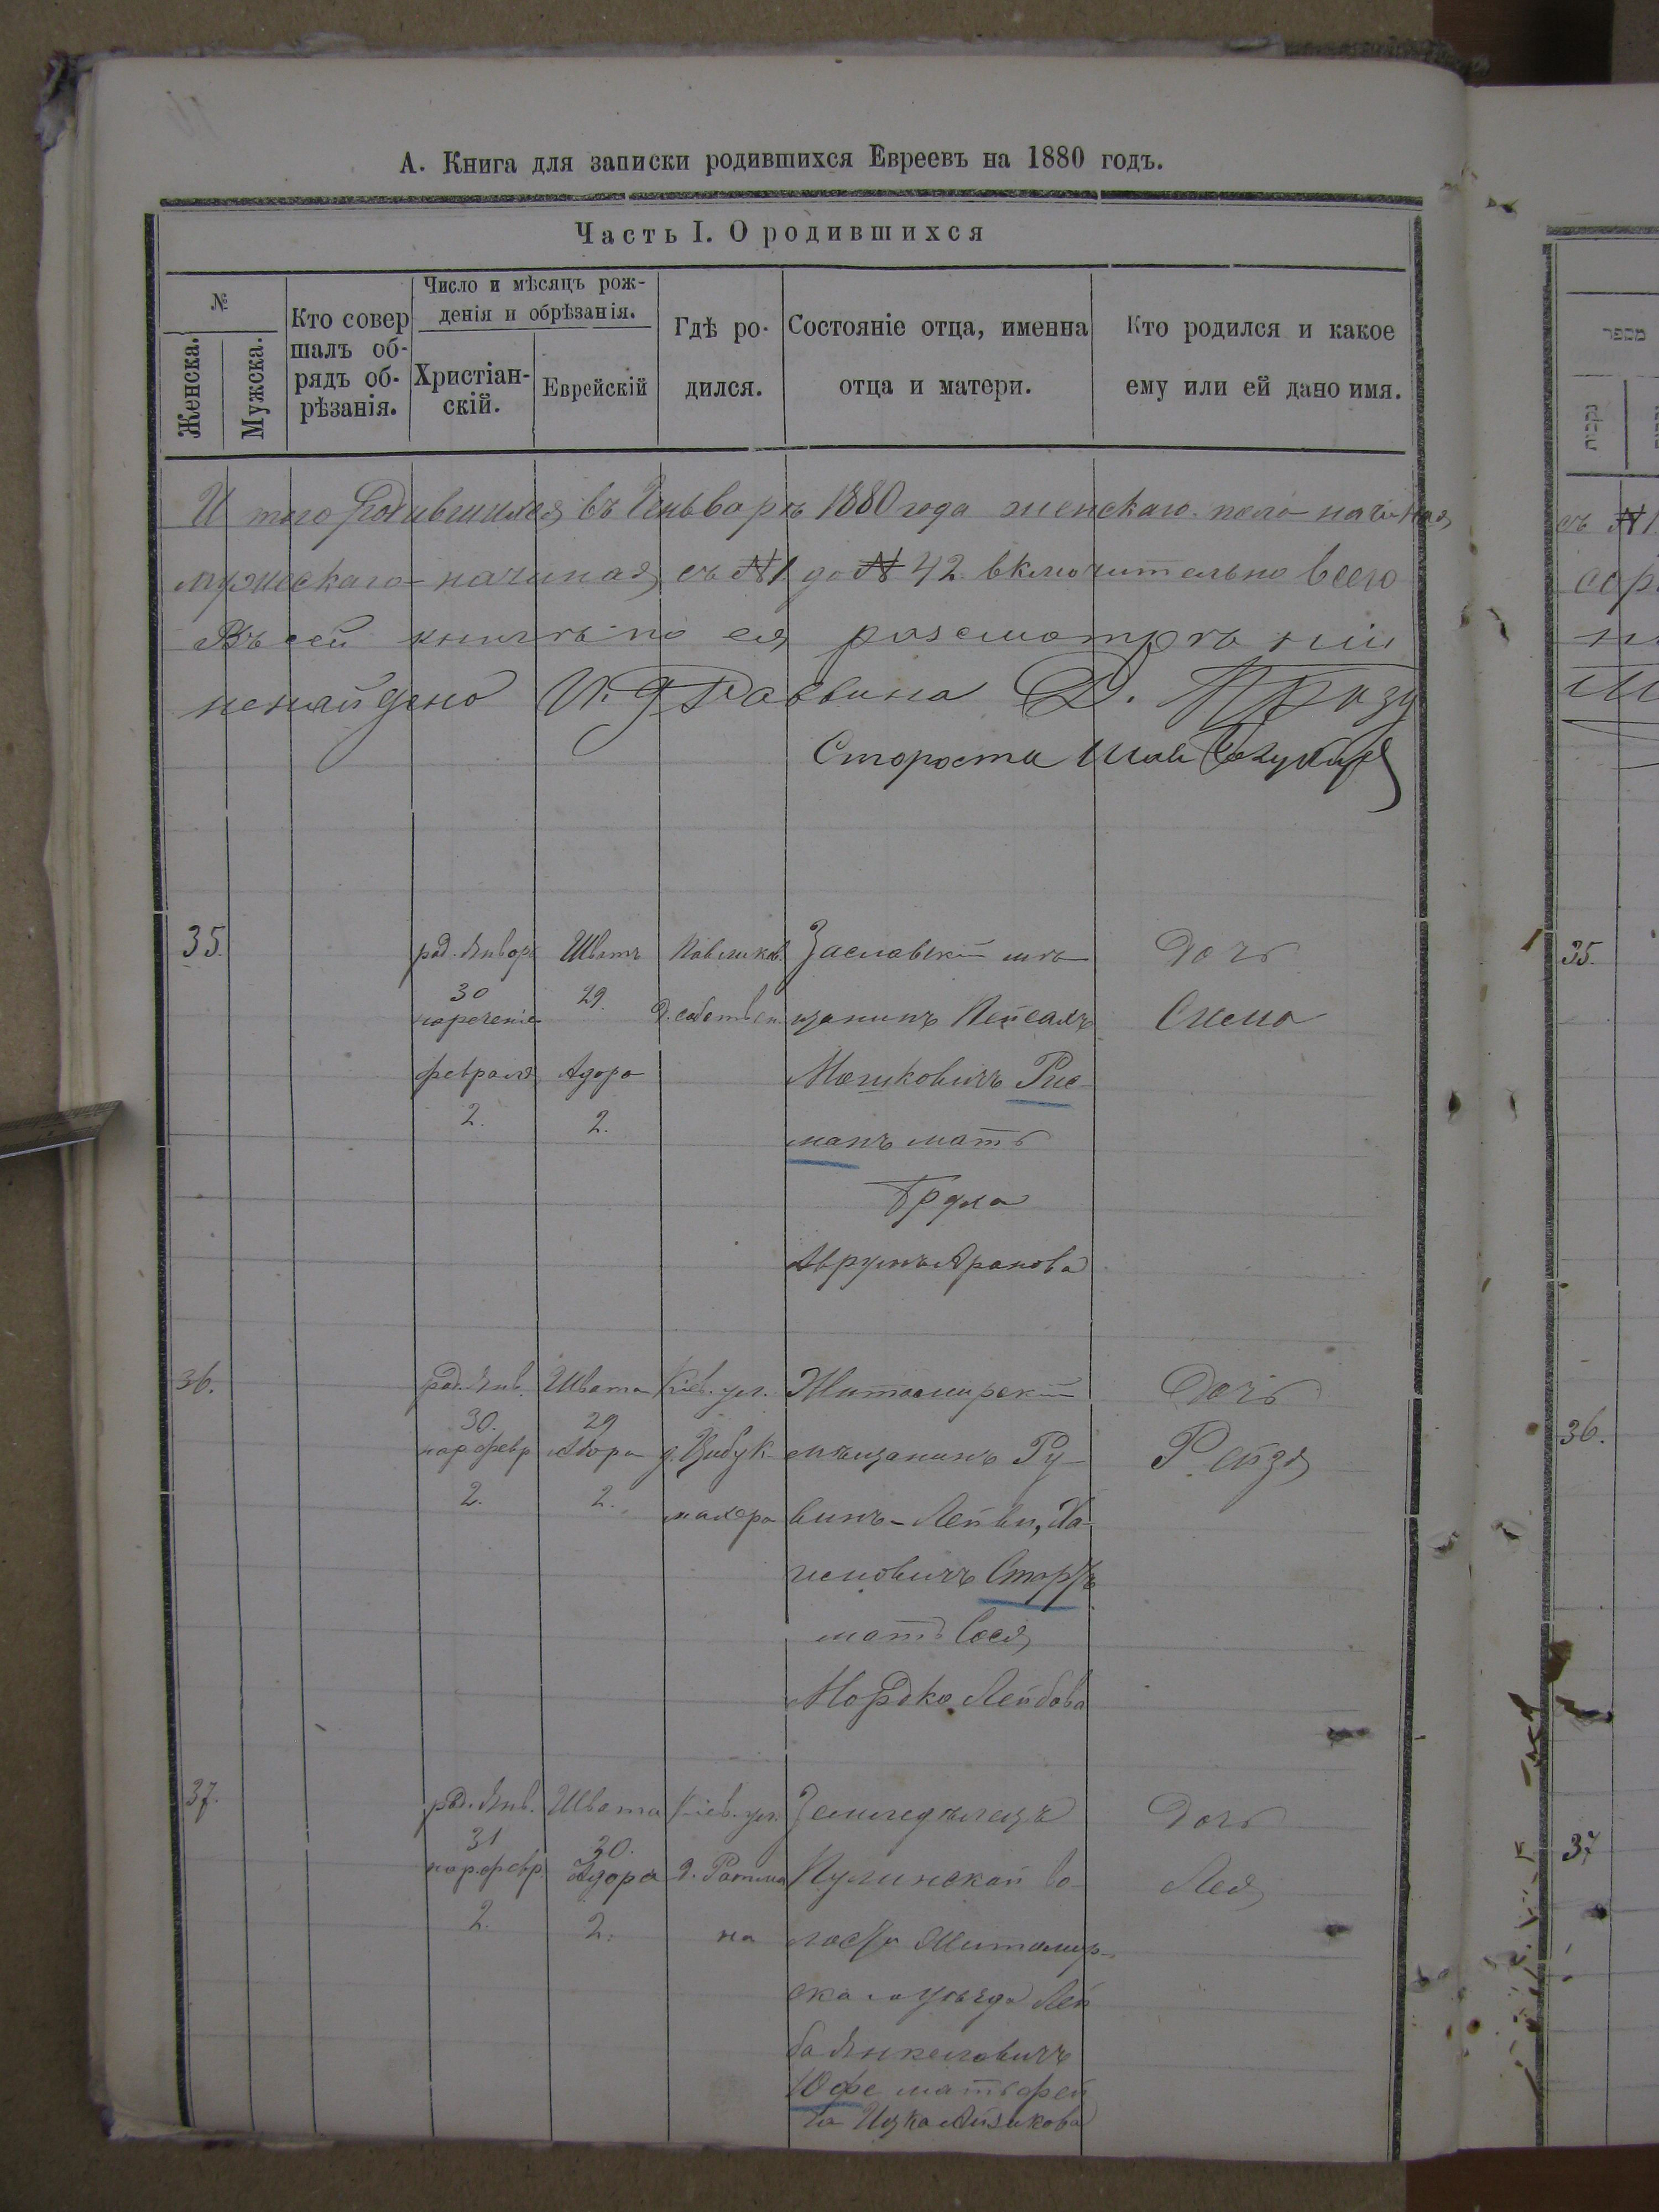 А. Книга для записки родившихся Евреевъ на 1880 годъ.
Часть I. О родившихся
№
Женска.
Мужска.
Кто совер
шалъ об-
рядъ об-
рѣзанія.
Число и мѣсяцъ рож-
денія и обрѣзанія.
Христіан-
скій.
Еврейскій
Гдѣ ро-
дился.
Состояніе отца, именна
отца и матери.
Кто родился и какое
ему или ей дано имя.
И того родившихся въ Генварѣ 1880 года женскаго пола начиная
мужескаго начиная съ №1 до № 42 включительно всего
Въ сей книгѣ по ея разсмотрѣніи
ненайдено И. д. Раввина
Староста
35.
род. Январь
30
нареченіе
февраля
2.
Шватъ
29.
Адора
2.
Павликов.
д. собствен.
Заславскій мѣ
щанинъ Пейсахъ
Мошковичъ Рис
манъ мать
Брума
Аврумъ Аронова
Дочь
Сима
36.
род. Янв.
30.
нар. февр
2.
Швата
29
Адора
2.
Кіев. ул.
д. Цибук
махера
Житомирскій
мѣщанинъ Ру
винъ-Лейви, Ха
имовичъ Старкъ
мать Сося
Мордко Лейбова
Дочь
Рейзя
37.
род. Янв.
31
нар. февр.
2.
Швата
30.
Адора
2.
Кіев. ул.
д. Ратма
на
Земледѣлецъ
Кулинской во
лости Житомир-
скаго уѣзда Лей
ба Янкелевичъ
Юфе мать фей
га Ицка Айзикова
Дочь
Лея
מספר
נקבות
съ №1
35.
36.
37